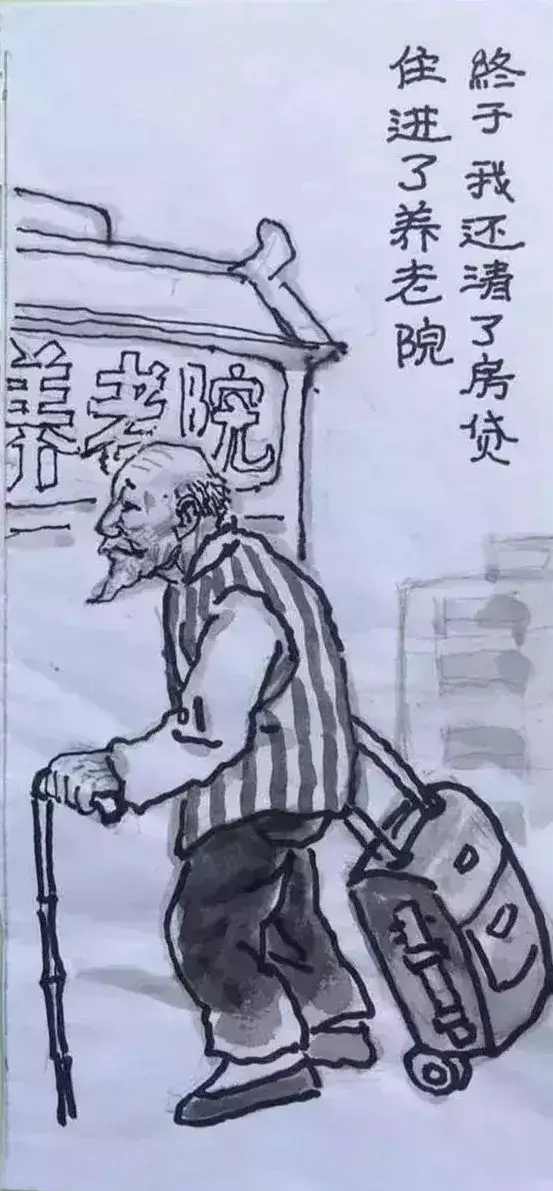 終于我还清了房贷
住进了养老院
养老院